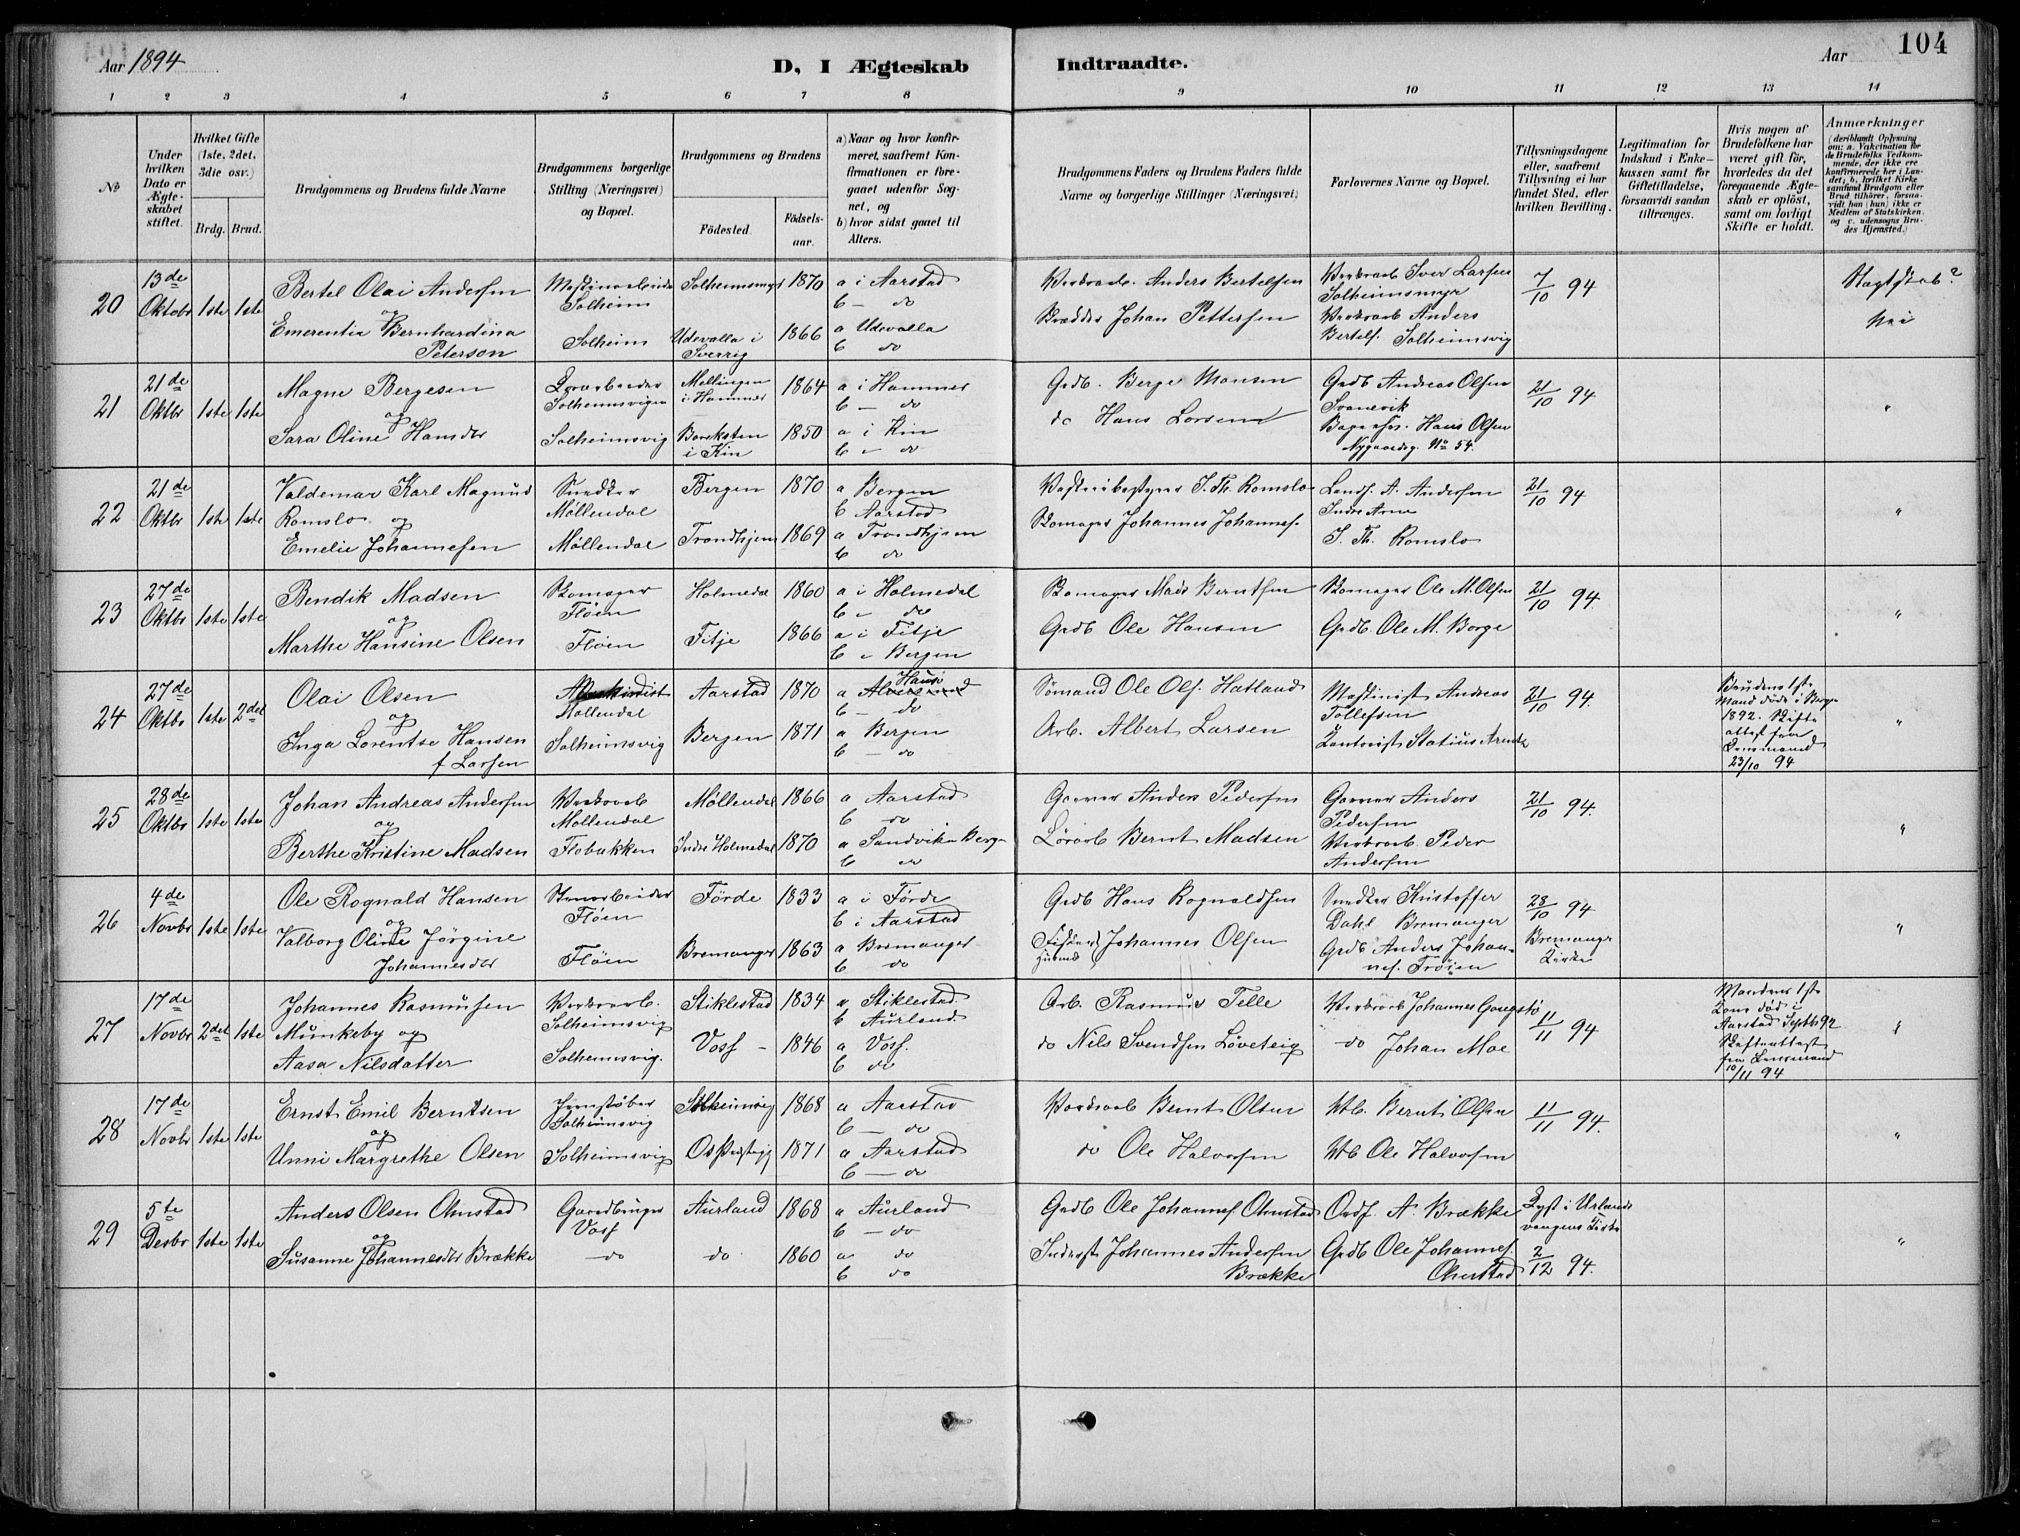 Aar 1894
D, I Ægteskab
Indtraadte.
Aar
104
1 2 3 4 5 6 7 8 9 10 11 12 13 14
№
Under hvilken Dato er Ægteskabet stiftet.
Hvilket Gifte (1ste, 2det, 3die osv.)
Brdg. Brud.
Brudgommens og Brudens fulde Navne
Brudgommens borgerlige Stilling (Næringsvei) og Bopæl.
Brudgommens og Brudens
Födested.
Födsels-aar.
a) Naar og hvor konfirmeret, saafremt Konfirmationen er foregaaet udenfor Sognet, og
b) hvor sidst gaaet til Alters.
Brudgommens Faders og Brudens Faders fulde Navne og borgerlige Stillinger (Næringsvei)
Forlovernes Navne og Bopæl.
Tillysningsdagene eller, saafremt Tillysning ei har fundet Sted, efter hvilken Bevilling.
Legitimation for Indskud i Enkekassen samt for Giftetilladelse, forsaavidt saadan tiltrænges.
Hvis nogen af Brudefolkene har været gift för, hvorledes da det foregaaende Ægteskab er oplöst, samt om lovligt Skifte er holdt.
Anmærkninger (deriblandt Oplysning om: a. Vakcination for de Brudefolks Vedkommende, der ikke ere konfirmerede her i Landet; b. hvilket Kirkesamfund Brudgom eller Brud tilhörer, forsaavidt han (hun) ikke er Medlem af Statskirken, og c. udensogns Brudes Hjemsted.)
20 13de Oktobr 1ste 1ste
Bertel Olai Andersen
og
Emerentia Bernhardina Peterson
Solheim
Solheim
Solheimsmyr 1870 a i Aarstad b – do
Udevalla i Sverrig 1866 a Udevalla b do
Anders Bertelsen
Johan Pettersen
Iver Larsen Solheimsmyr
Anders Bertels. Solheimsvig
7/10 94
Slagtskab?
Nei
21 21de Oktbr 1ste 1ste
Magne Bergesen
og
Sara Oline Hansdtr
Solheimsvigen
Solheimsvig
i Hammer 1864 a i Hammer b – do
i Kin 1850 a i Kin b – do
Grdb. Berge Monsen
do Hans Larsen
Grdb Andreas Olsen Svanevik
Hans Olsen Nygaardsg. No 54.
21/10 94
"
22 21de Oktbr 1ste 1ste
Valdemar Karl Magnus Romslo og
Emelie Johannesen
Snedker Møllendal
Møllendal
Bergen 1870 a Bergen b Aarstad
Trondhjem 1869 a Trondhjem b do
J. Th. Romslo
Skomager Johannes Johannes.
A. Andersen Indre Arne
J. Th. Romslo
21/10 94
"
23 27de Oktbr 1ste 1ste
Bendik Madsen
og
Marthe Hansine Olsen
Skomager Fløen
Fløen
Holmedal 1860 a i Holmedal b – do
Fitje 1866 a i Fitje b – Bergen
Mads Berntsen
Grdb Ole Hansen
Skomager Ole M. Olsen
Grdb. Ole M. Borge
21/10 94
"
24 27de Oktbr 1ste 2det
Olai Olsen
og
Inga Lorentse Hansen f Larsen
Møllendal
Solheimsvig
Aarstad 1870 a Haus b – do
Bergen 1871 a Bergen b – do
Sømand Ole Ols. Hatland
Arb. Albert Larsen
Maskinist Andreas Tollefsen
Kontorist Statius Arentz
21/10 94.
Brudens 1ste Mand døde i Berg. 1892. Skifteattest fra Lensmand 23/10 94
"
25 28de Oktbr 1ste 1ste
Johan Andreas Andersen
og
Berthe Kristine Madsen
Møllendal
Flobakken
Møllendal 1866 a Aarstad b do
Indre Holmedal 1870 a Sandviken Berg. b do
Garver Anders Pedersen
Bernt Madsen
Garver Anders Pedersen
Peder Andersen
21/10 94.
"
26 4de Novbr 1ste 1ste
Ole Rognald Hansen
og
Valborg Oline Jörgine Johannesdtr
Fløen
Fløen
Förde 1833 a i Førde b i Aarstad
Bremanger 1863 a Bremanger b do
Grdb Hans Rognaldsen
Johannes Olsen
Snedker Kristoffer Dahl Bremanger
Grdb Anders Johannes. Trøien
28/10 94 Bremanger Kirke
"
27 17de Novbr 2det 1ste
Johannes Rasmussen Munkeby og
Aasa Nilsdatter
Solheimsvig
Solheimsvig.
Stiklestad 1834 a Stiklestad. b Aurland.
Voss – 1846 a Voss. b do
Arb. Rasmus Telle
do Nils Svendsen Løveteig
Johannes
do Johan Moe
11/11 94
Mandens 1ste Kone død i Aarstad Septb 92 Skifteattest fra Lensmand 10/11 94
"
28 17de Novbr 1ste 1ste
Ernst Emil Berntsen
og
Unni Margrethe Olsen
Jernstøber Solheimsvig
Solheimsvig
Solheimsvig 1868 a Aarstad b – do
1871 a Aarstad b – do
Bernt Olsen
do Ole Halvorsen
Bernt Olsen
Ole Halvorsen
11/11 94.
"
29 5te Desbr 1ste 1ste
Anders Olsen Ohnstad
og
Susanne Johannesdtr Brække
Gaardbruger Voss
– do
Aurland 1868 a Aurland b – do
do 1860 a do b do
Grdb Ole Johannes. Ohnstad
Inderst Johannes Andersen Brække
A. Brække
Grdb Ole Johannes. Ohnstad
Lyst i Urlandsvangens Kirke 2/12 94.
"